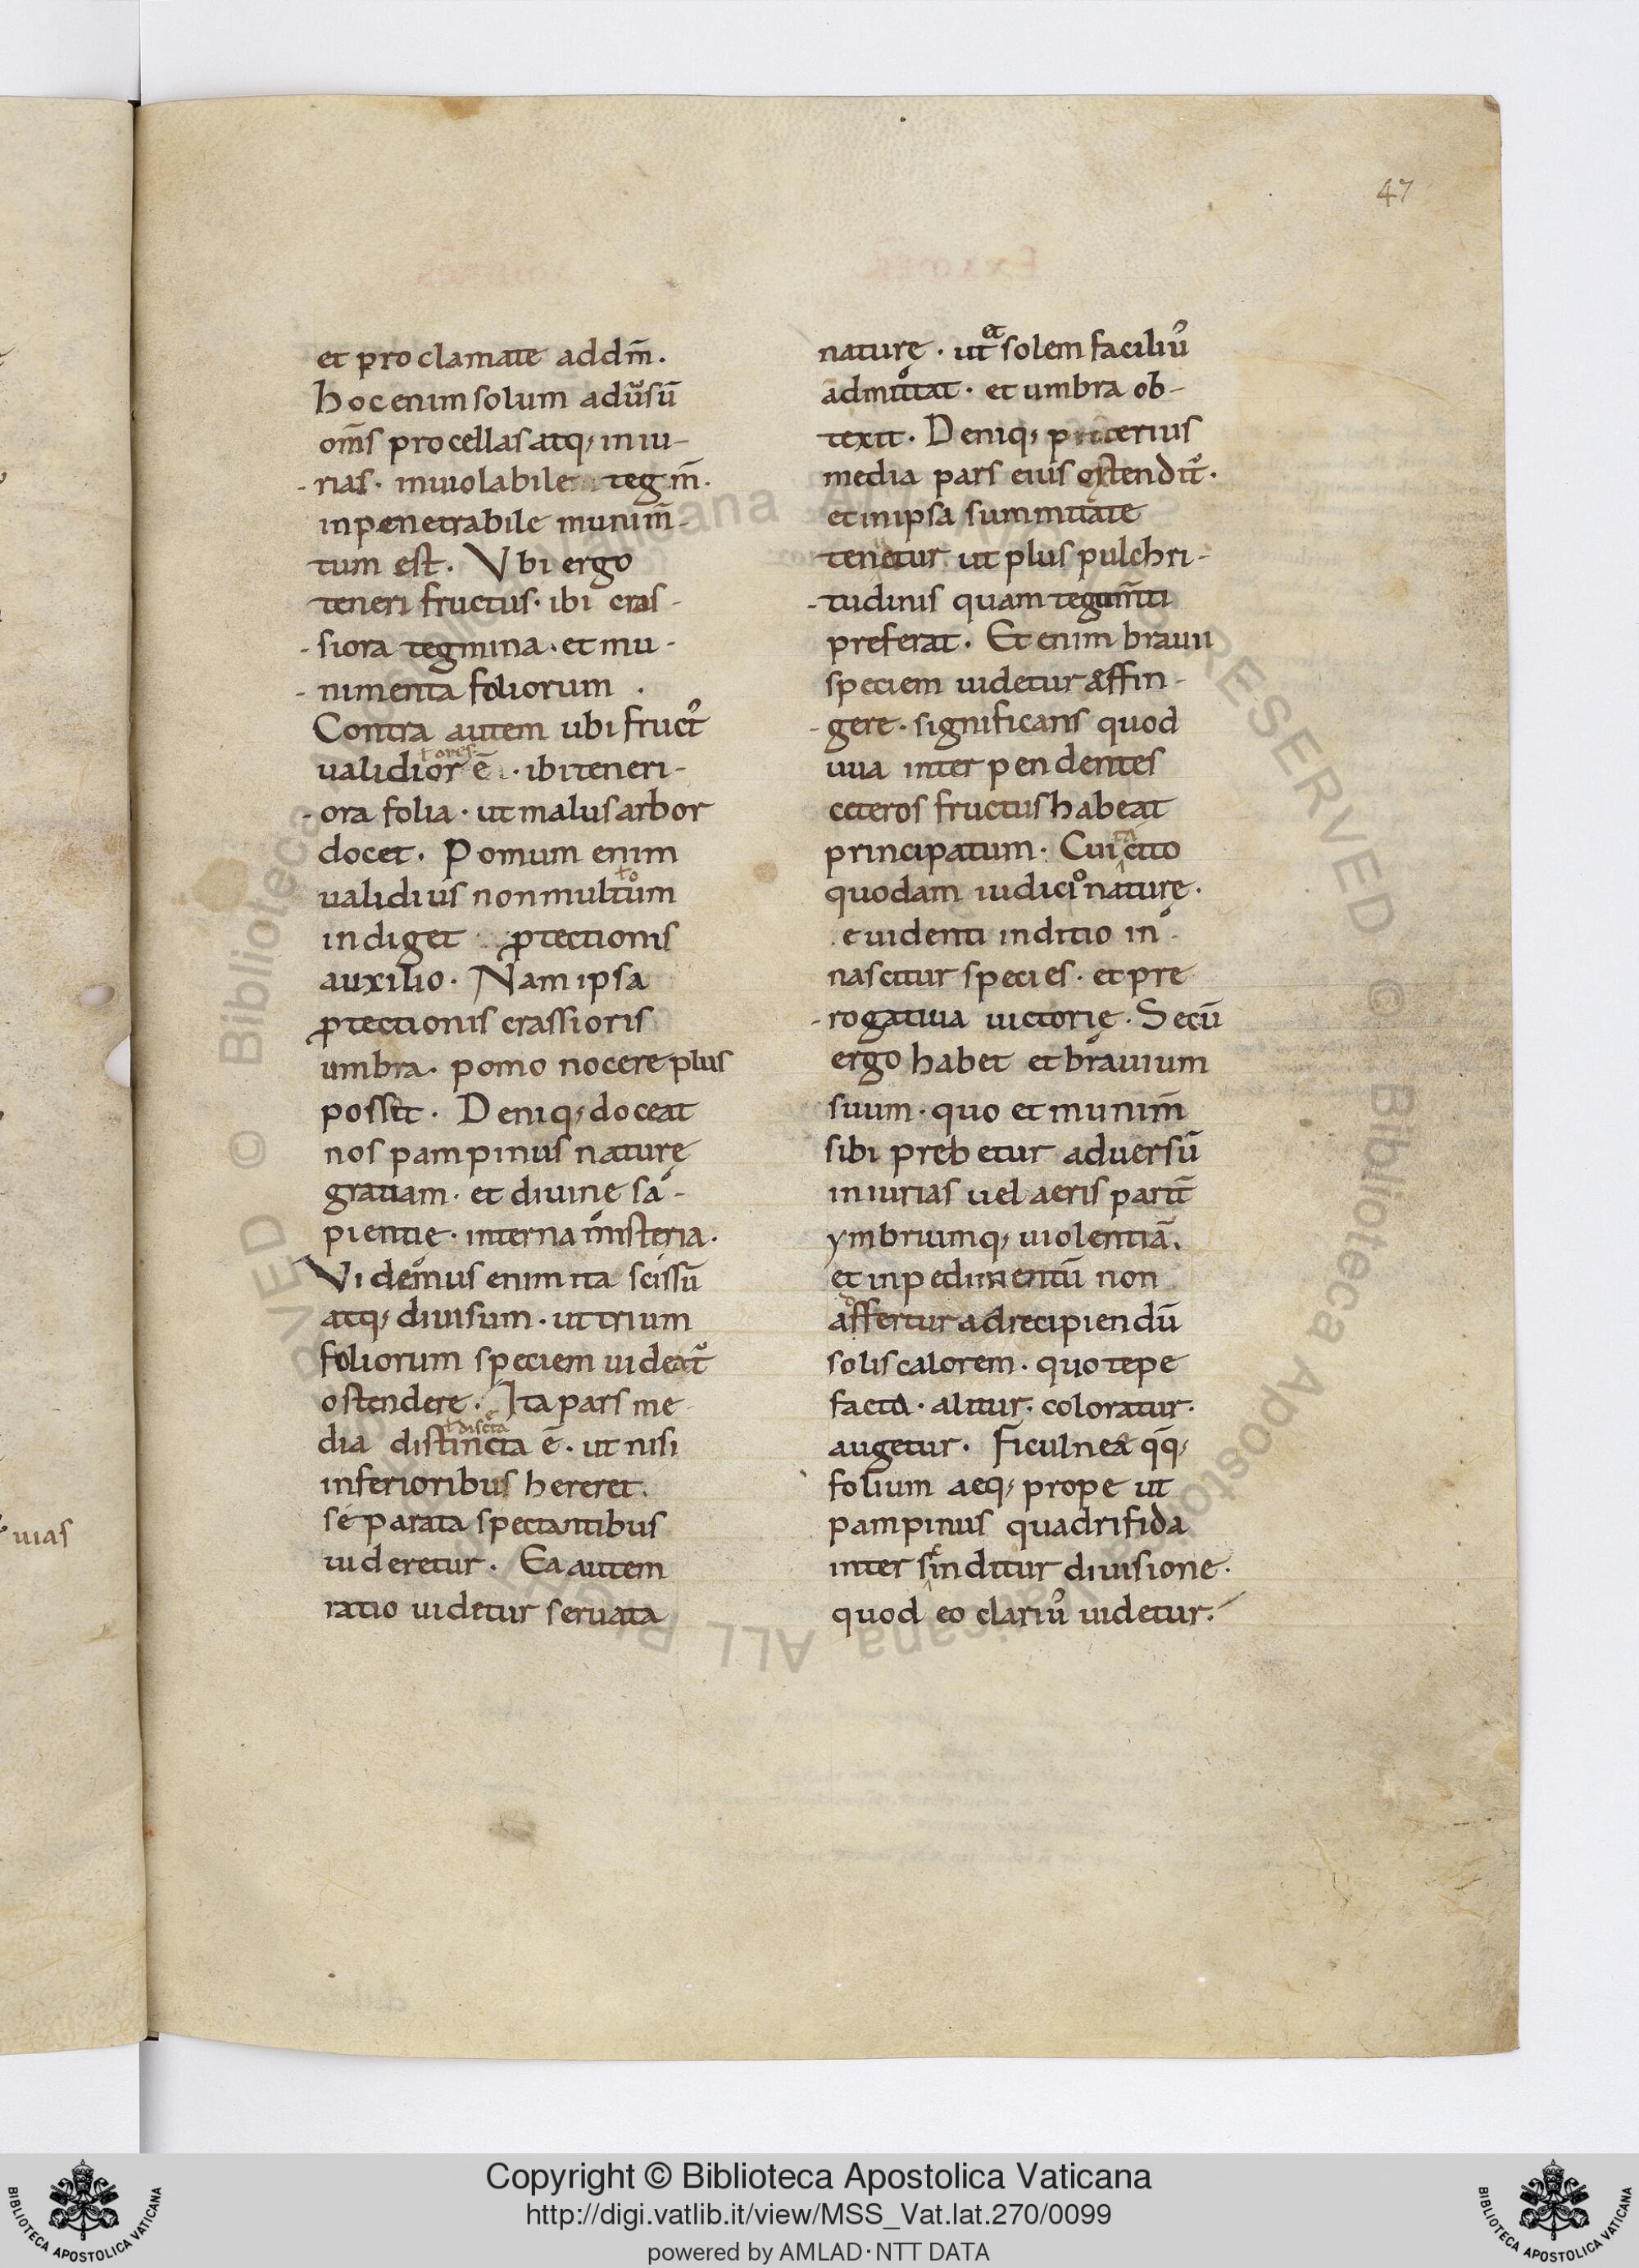 47
et proclamate addm̄.
hocenim solum adu͛sū
om̄s procellas atq; iniu-
-rias. inuiolabile tegm̄.
inpenetrabile munim̄-
tum est. Vbi ergo
teneri fructus. ibi cras-
-siora tegmina. et mu-
-nimenta foliorum.
Contra autem ubi fruct᾽
ł ores
ualidior ē. ibi teneri-
-ora folia. ut malus arbor
docet. Pomum enim
ł o
ualidius non multum
indiget ꝓtectionis
auxilio. Nam ipsa
ꝓtectionis crassioris
umbra. pomo nocere plus
possit. Deniq; doceat
nos pampinus naturę
gratiam. et diuinę sa-
pientię. interna misteria.
Videmus enim ita scissū
atq; diuisum. ut trium
foliorum speciem uideat᾽
ostendere. Ita pars me
ł discreta
dia distincta ē. ut nisi
inferioribus hereret.
separata spectantibus
uideretur. Ea autem
ratio uidetur seruata
et
naturę. ut solem faciliu᾽
admittat. et umbra ob-
texit. Deniq; procerius
media pars eius ostendit᾽.
et in ipsa summitate
tenetur ut plus pulchri-
-tudinis quam tegum̄ti
preferat. Et enim brauii
speciem uidetur affin-
-gere. significans quod
uua inter pendentes
ceteros fructus habeat
ta
principatum. Cui cito
quodam iudicio naturę.
euidenti inditio in
nascitur species. et pre
-rogatiua uictorię. Secū
ergo habet et brauium
suum. quo et munim̄
sibi prebetur aduersū
iniurias uel aeris parit̄
ymbriumq; uiolentiā.
et inpedimentū non
affertur ad recipiendū
solis calorem. quo tepe
facta. alitur. coloratur.
augetur. Ficulnea qq̄;
folium aeq; prope ut
pampinus quadrifida
inter sinditur diuisione.
quod eo clariu᾽ uidetur.
uias
© Biblioteca Apostolica Vaticana ALL RIGHTS RESERVED
Copyright © Biblioteca Apostolica Vaticana
http://digi.vatlib.it/view/MSS_Vat.lat.270/0099
powered by AMLAD·NTT DATA
BIBLIOTECA APOSTOLICA VATICANA
BIBLIOTECA APOSTOLICA VATICANA